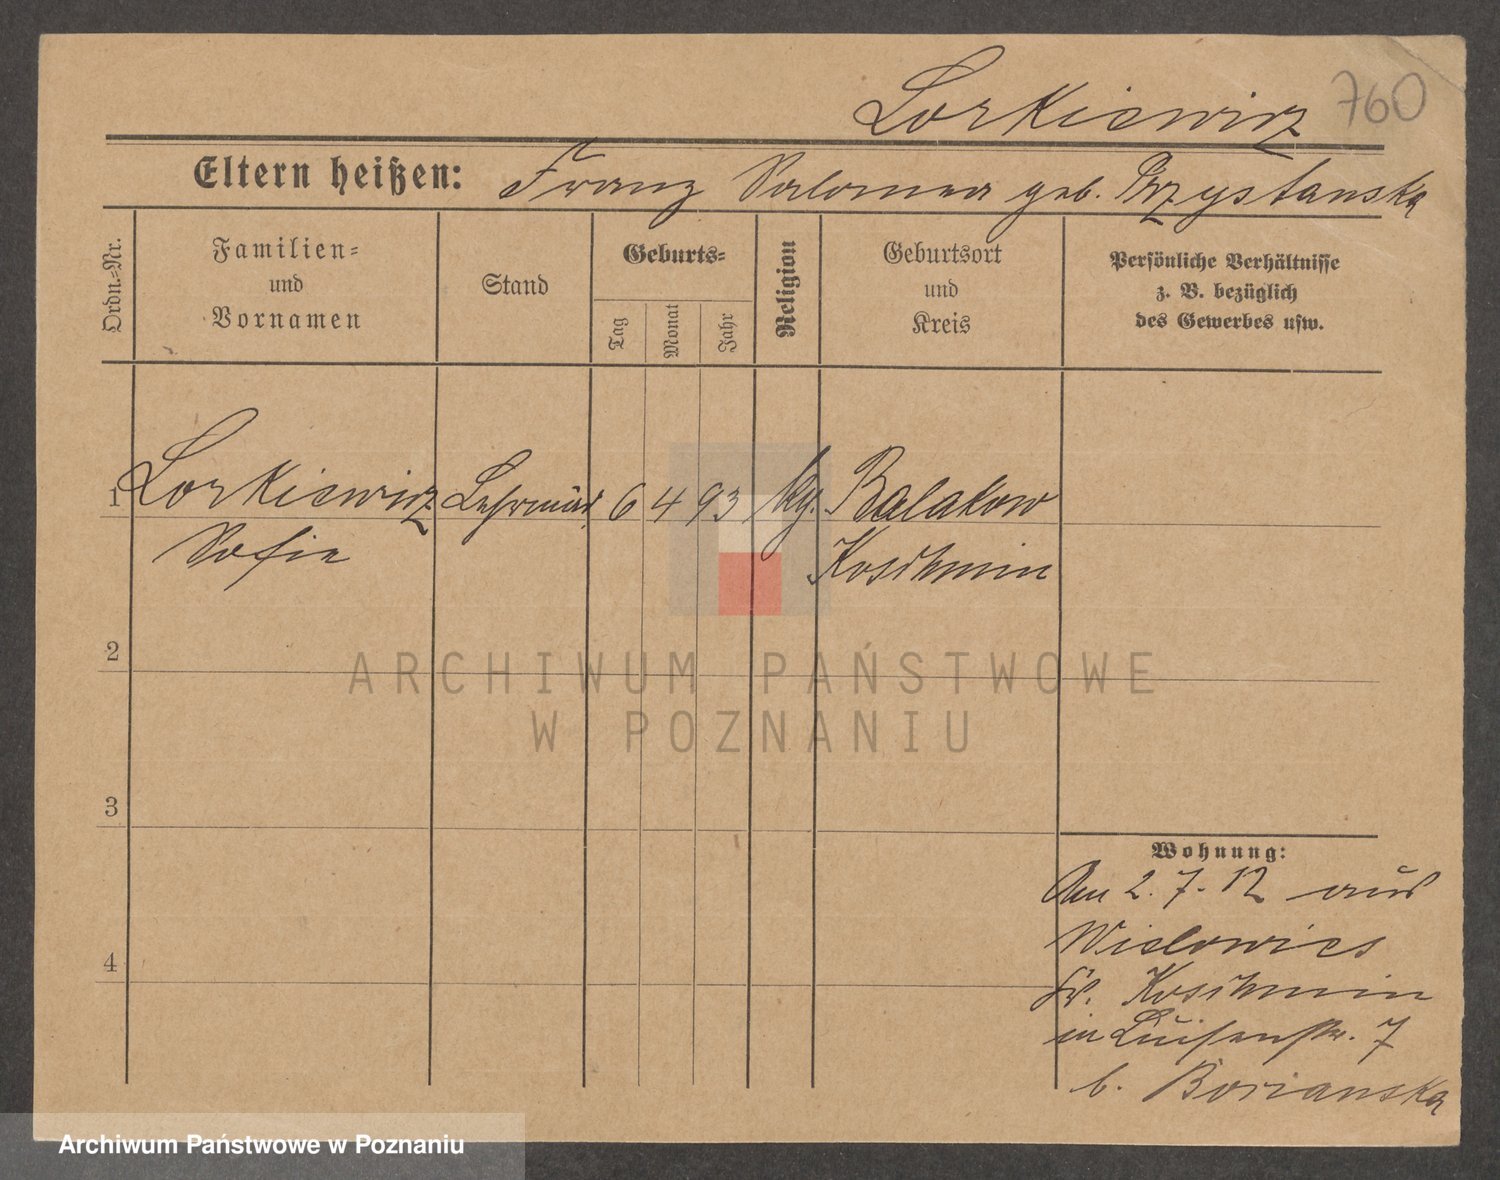 Lorkiewicz 760
Eltern heißen: Franz Salomea geb. Przystanska
Ordn.=Nr.
Familien=
und
Vornamen
Stand
Geburts=
Tag
Monat
Jahr
Religion
Geburtsort
und
Kreis
Persönliche Verhältnisse
z. B. bezüglich
des Gewerbes usw.
1 Lorkiewicz Lehrmäd. 6 4 93 Balakow
Sofie Koschmin
2
3
4
Wohnung:
Am 2. 7. 12 aus
Koschmin
in Luisenstr. 7
b. Borianska
ARCHIWUM PAŃSTWOWE
W POZNANIU
Archiwum Państwowe w Poznaniu